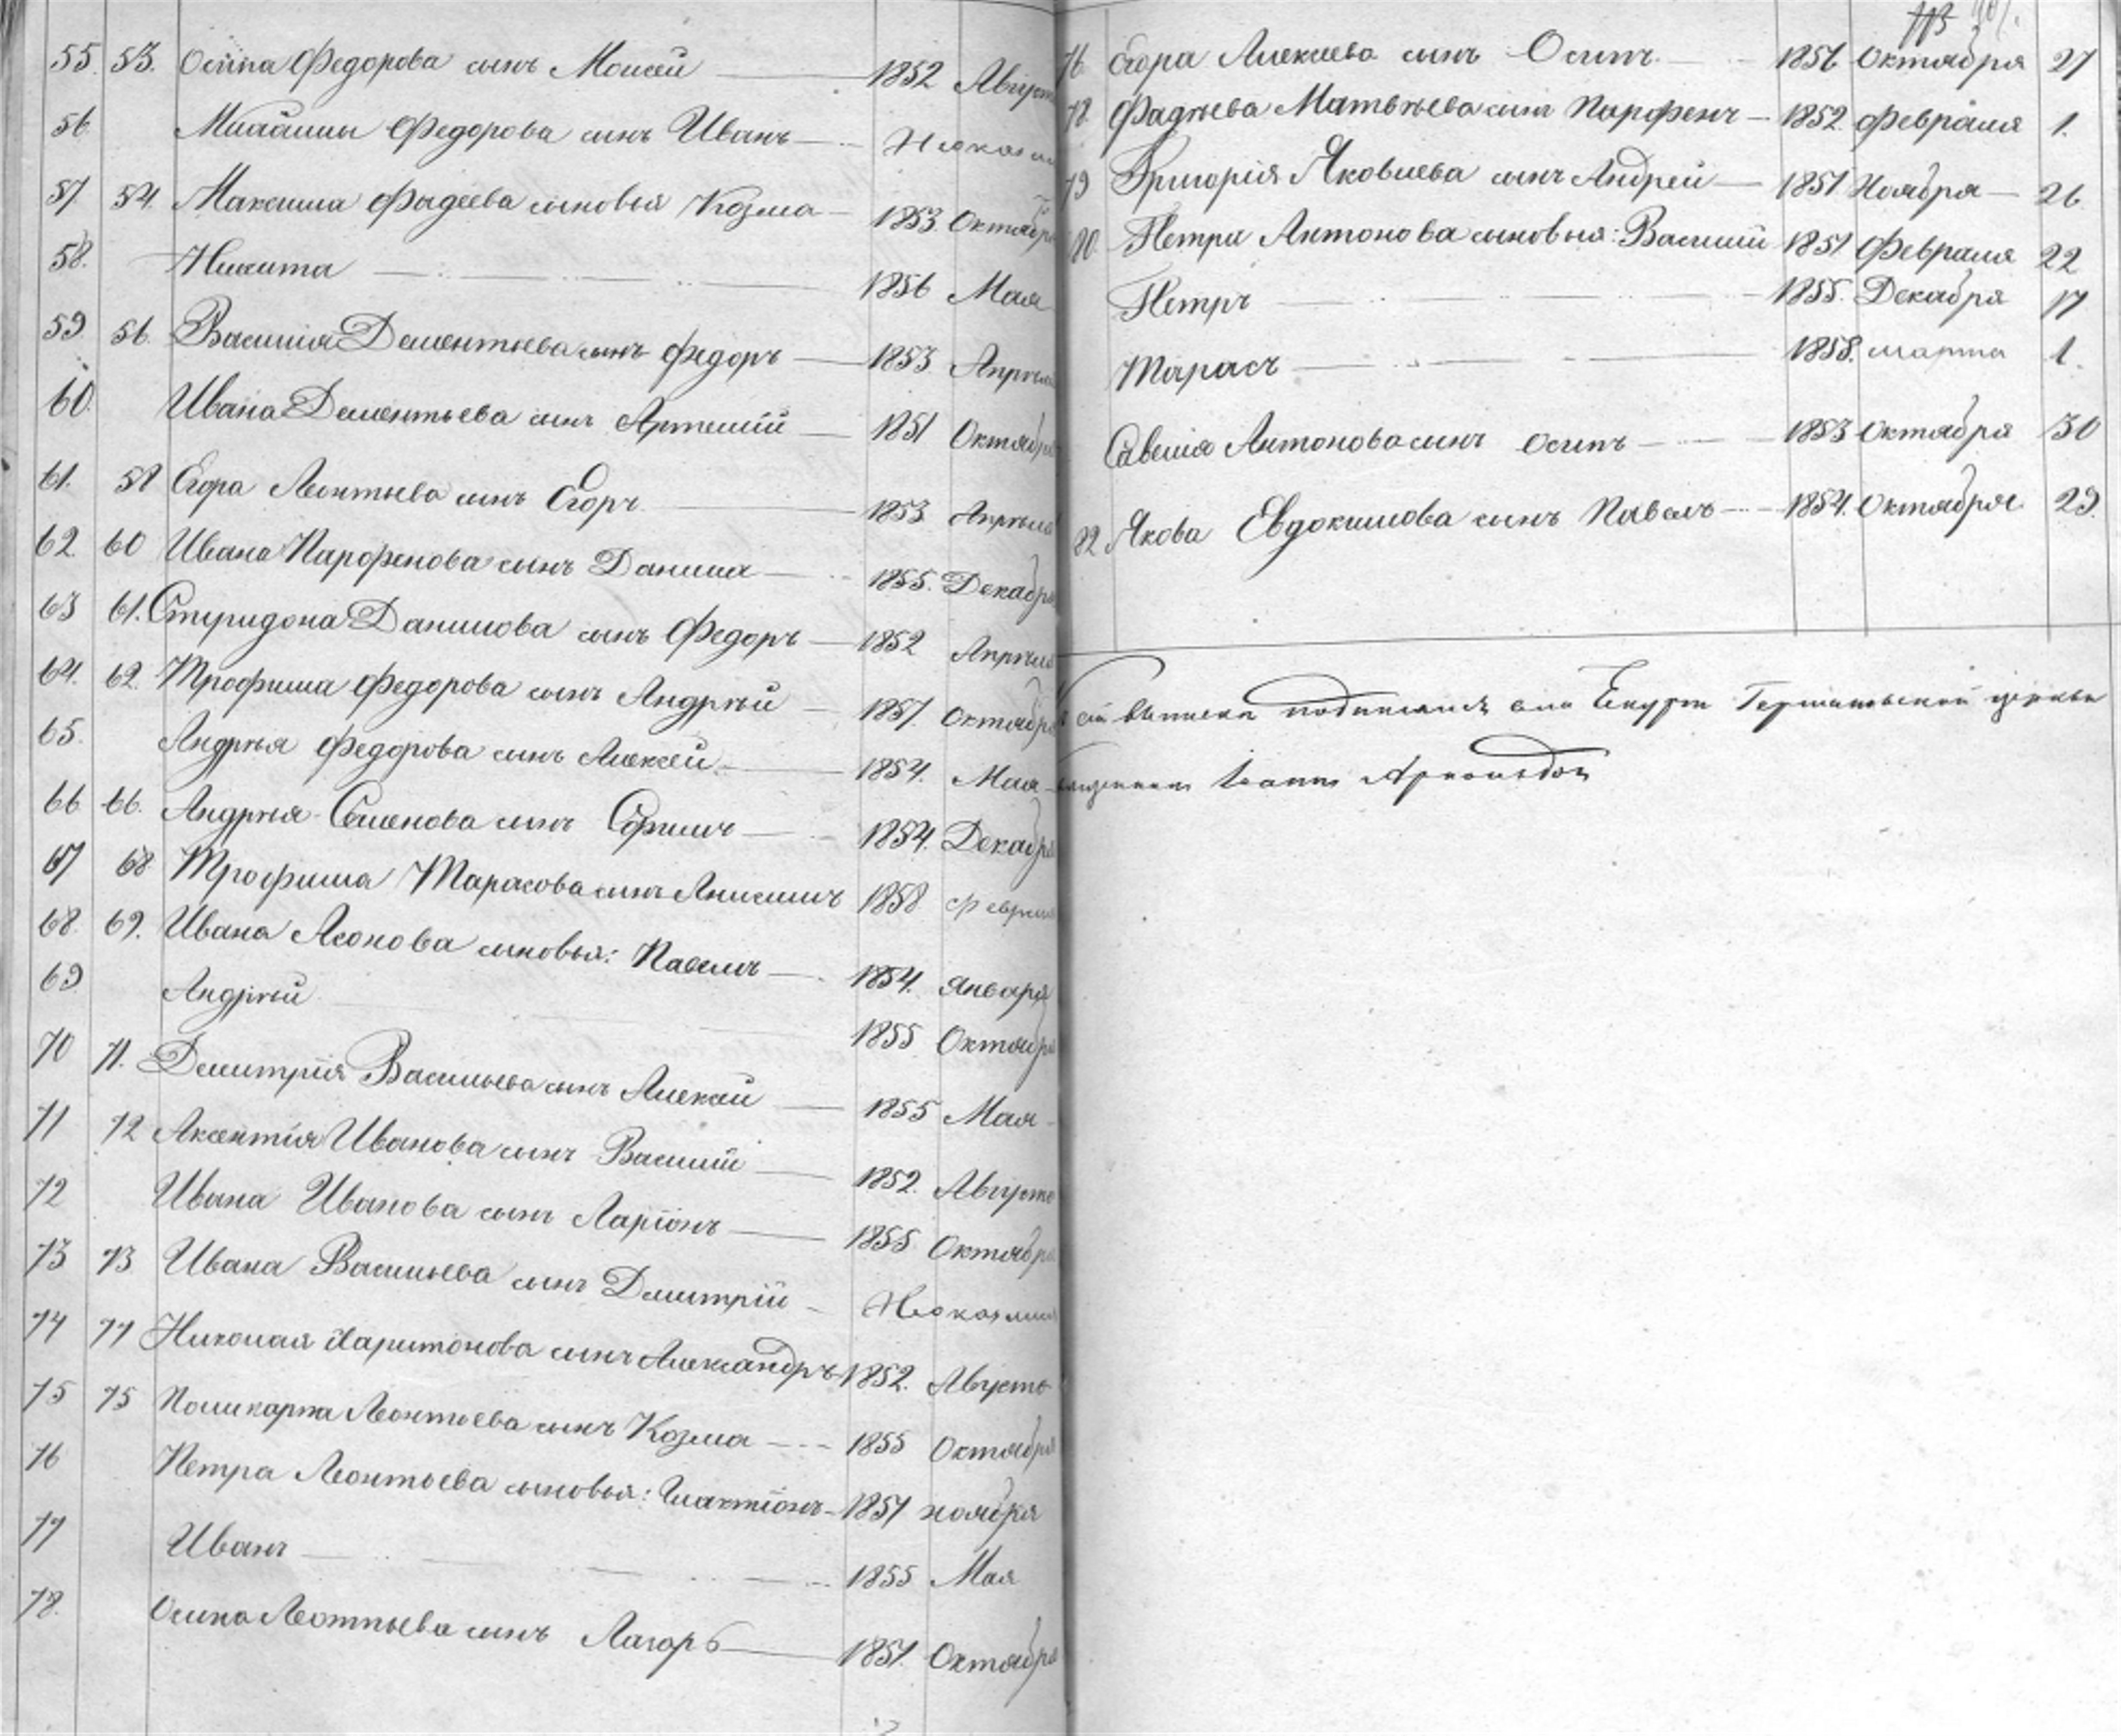 55. 53. Осипа Федорова сынъ Моисей — 1852 Август
56. Федорова сынъ Иванъ —
57 54. Максима Фадеева сыновья Козма — 1853 Октября
58. Никита — 1856 Мая
59. 56. Василия Дементьева сынъ Федоръ — 1853 Апрѣля
60. Ивана Дементьева сынъ Артемий — 1851 Октября
61. 58 Егора Леонтьева сынъ Егоръ — 1853 Апрѣля
62. 60 Ивана Парфенова сынъ Данила — 1855. Декабря
63 61. Спиридона Данилова сынъ Федоръ — 1852 Апрѣля
64. 62. Трофима Федорова сынъ Андрѣй — 1857. Октября
65. Андрѣя Федорова сынъ Алексей — 1854. Мая
66 66. Андрѣя Семенова сынъ — 1854. Декабря
67 68 Трофима Тарасова сынъ Анисимъ 1858 Феврал
68. 69. Ивана Леонова сыновья: Павелъ — 1854. Января
69 Андрѣй 1855 Октября
70 71. Дмитрія Васильева сынъ Алексей — 1855 Мая
71 72 Аксентія Иванова сынъ Василій — 1852. Августа
72 Ивана Иванова сынъ Ларіонъ — 1855 Октября
73 73 Ивана Васильева сынъ Дмитрій —
74 Николая Харитонова сынъ Александръ 1852. Августъ
75 75 Поликарпа Леонтьева сынъ Козма — 1855 Октября
76 Петра Леонтьева сыновья: — 1857 ноября
77 Иванъ — 1855 Мая
78. Осипа Леонтьева сынъ — 1857. Октября
76. Егора Алексеева сынъ Осипъ — 1856 Октября 27
78. Фадѣева Матвѣева сынъ Парфенъ — 1852. Февраля 1.
79 Григорія Яковлева сынъ Андрей — 1857 Ноября — 26
80. Петра Антонова сыновья: Василій 1851 Февраля 22
Петръ — 1855. Декабря 17
Тарасъ — 1858. марта 1.
Савелія Антонова сынъ Осипъ — 1853 Октября 30
82 Якова Евдокимова сынъ Павелъ — 1854. Октября 29.
сей выписки подписался церкви
Іоаннъ